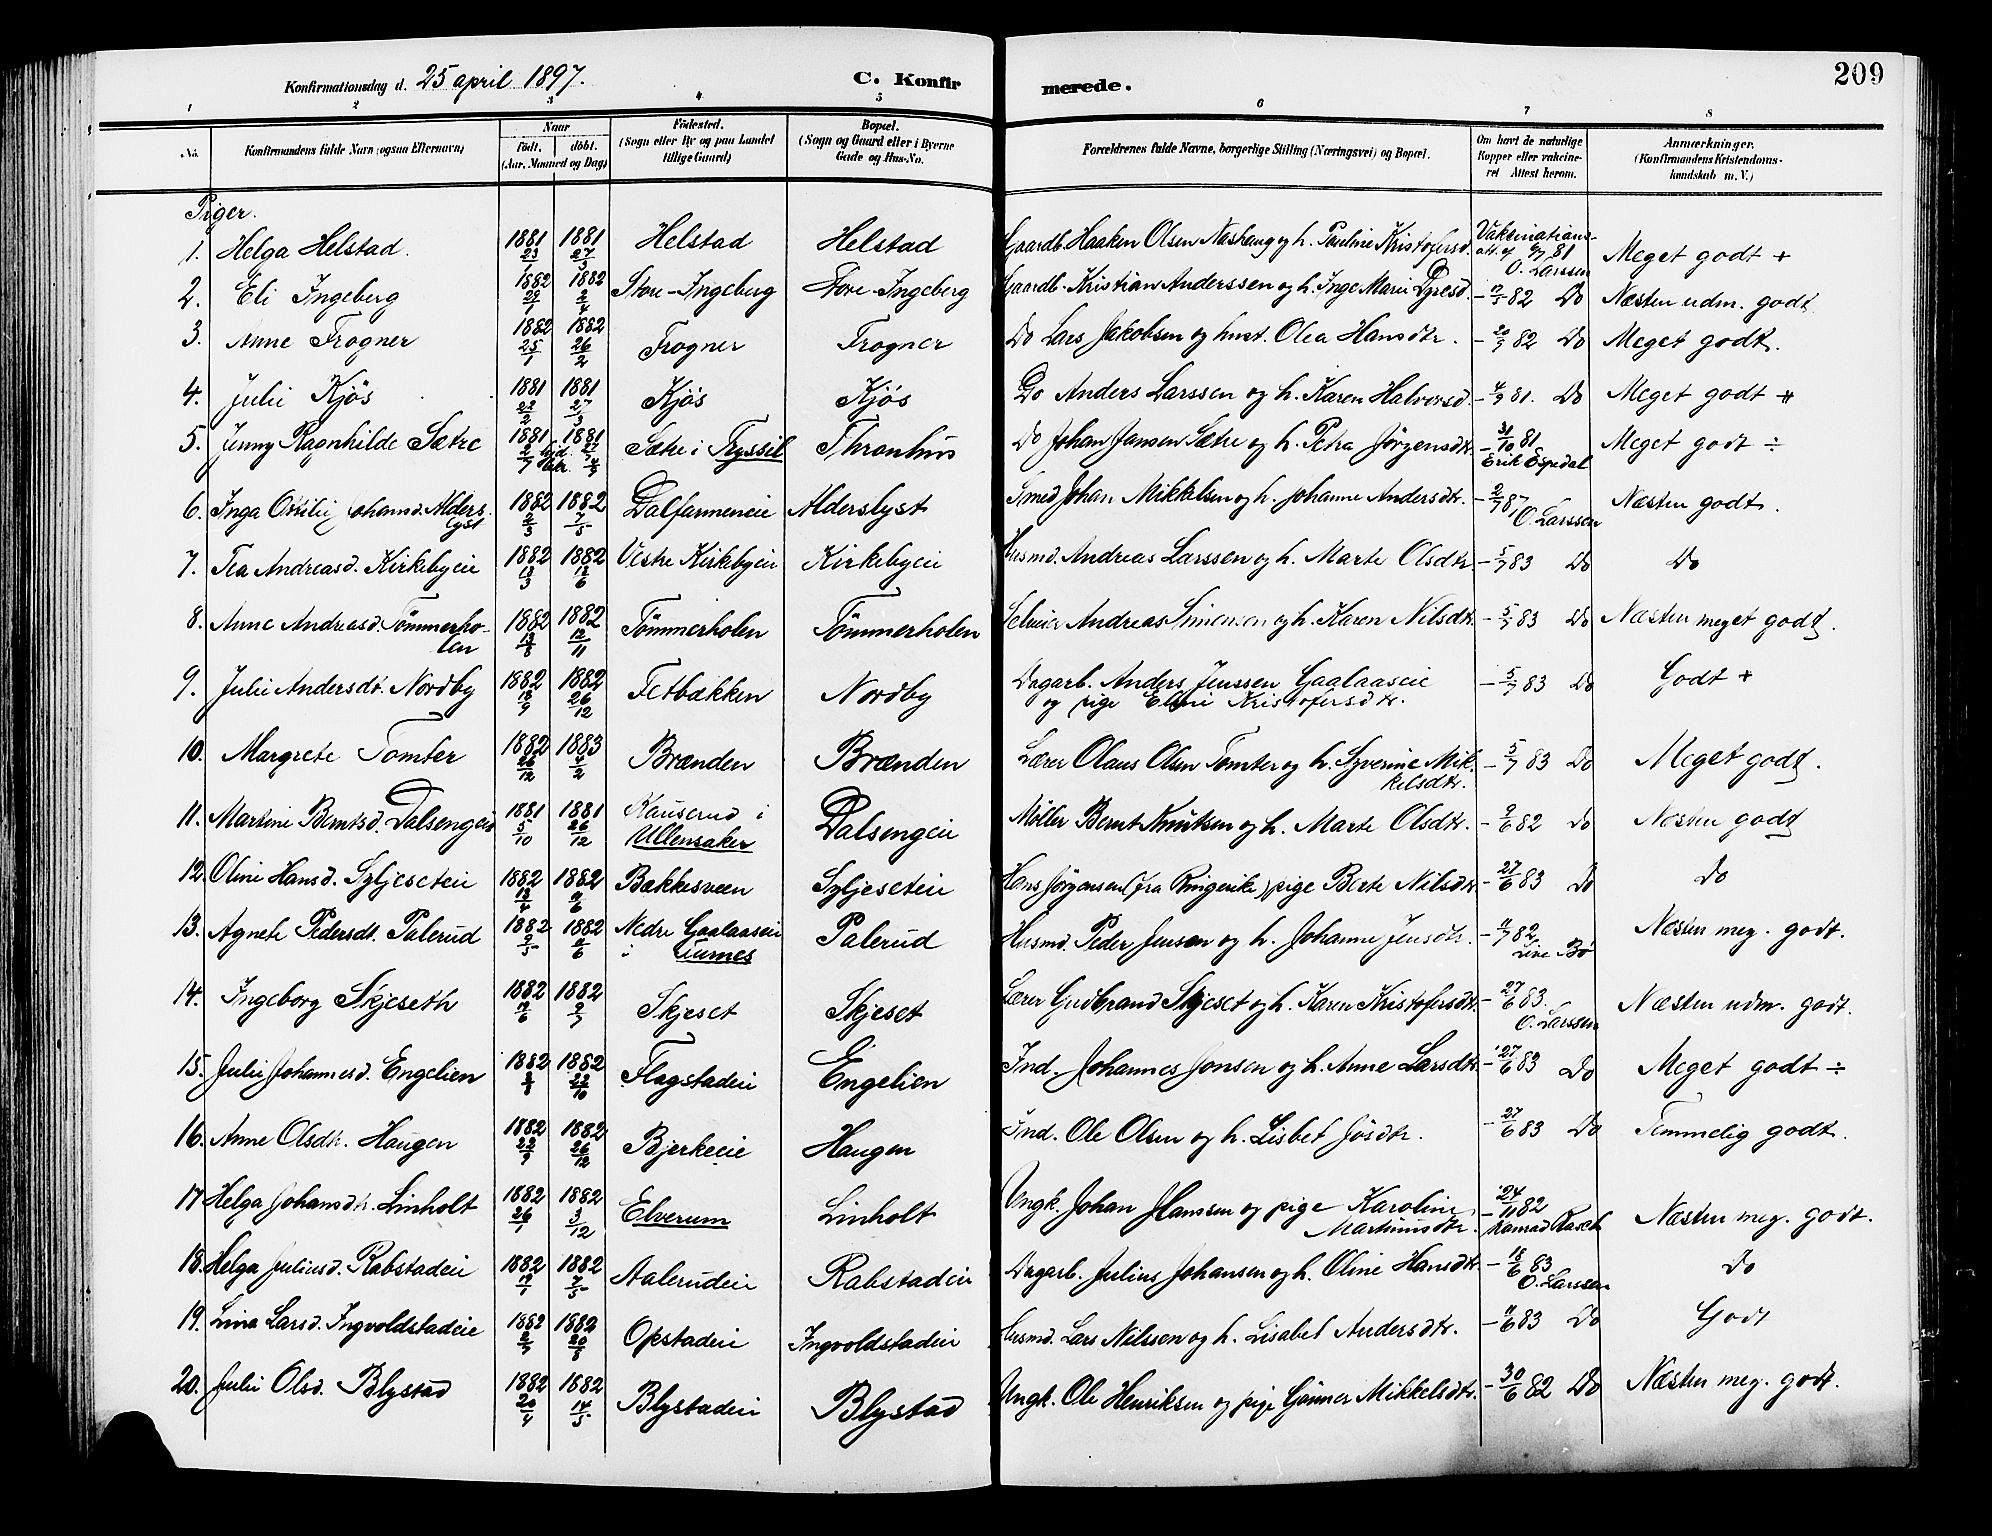 209
Konfirmationsdag d. 25 april 1897. C. Konfirmerede.
1 2 3 4 5 6 7 8
No. Konfirmandens fulde Navn (ogsaa Efternavn) Naar født. døbt. (Aar, Maaned og Dag) Fødested. (Sogn eller By og paa Landet tillige Gaard) Bopæl. (Sogn og Gaard eller i Byerne Gade og Hus-No. Forældrenes fulde Navne, borgerlige Stilling (Næringsvei) og Bopæl. Om havt de naturlige Kopper eller vakcineret Attest herom. Anmærkninger. (Konfirmandens Kristendomskundskab m. V.)
Piger.
1. Helga Helstad. 1881 23/2 1881 27/3 Helstad Helstad Gaardb. Haaken Olsen Nashaug og h. Pauline Kristofersd. Vakcinations-att. af 9/7 81 O. Larssen Meget godt +
2. Eli Ingeberg 1882 29/1 1882 2/4 Store-Ingeberg Store-Ingeberg Gaardb. Kristian Anderssen og h. Inge Marie Dyresd. - 17/5 82 Do Næsten udm. godt
3. Anne Frogner 1882 25/1 1882 26/2 Frogner Frogner Do Lars Jakobsen og hust. Olea Hansdtr. - 20/7 82 Do Meget godt.
4. Juli Kjøs 1881 22/2 1881 27/3 Kjøs Kjøs Do Anders Larssen og h. Karen Halvorsd. - 4/7 81. Do Meget godt +
5. Jenny Ragnhilde Sætre 1881 2/7 1881 Sætre i Tryssil Thronhus Do Johan Jansen Sætre og h. Petra Jørgensdtr. - 31/10 81 Erik Espedal Meget godt ÷
6. Inga Otilie Johannd. Alderslyst 1882 2/3 1882 7/5 Dalfarmeneie Alderslyst Smed Johan Mikkelsen og h. Johanne Andersdtr. - 2/7 87 O. Larssen Næsten godt.
7. Tea Andreasd. Kirkebyeie 1882 12/3 1882 12/6 Vestre Kirkebyeie Kirkebyeie Husmd. Andreas Larssen og h. Marte Olsdtr - 5/7 83 Do Do
8. Anne Andreasd. Tømmerholen 1882 13/8 1882 12/11 Tømmerholen Tømmerholen Selveier Andreas Simensen og h. Karen Nilsdtr. - 5/7 83 Do Næsten meget godt.
9. Julie Andersdt. Nordby 1882 18/9 1882 26/12 Fetbækken Nordby Dagarb. Anders Jenssen Gaalaaseie og pige Eline Kristofersdtr. - 5/7 83 Do Godt +
10. Margrete Tomter 1882 26/12 1883 4/2 Brænden Brænden Lærer Olaus Olsen Tomter og h. Syverine Mikkelsdtr. - 5/7 83 Do Meget godt.
11. Martine Berntsd. Dalsengeie 1881 5/10 1881 26/12 Kauserud i Ullensaker Dalsengeie Møller Bernt Knutsen og h. Marte Olsdtr. - 9/6 82 Do Næsten godt
12. Oline Hansd. Syljeseteie 1882 13/4 1882 9/6 Bakkesveen Syljeseteie Hans Jørgensen (fra Ringerike) pige Berte Nilsdtr - 27/6 83 Do Do
13. Agnete Pedersdt. Palerud 1882 2/5 1882 9/6 Nedre Gaalaaseie i Furnes Palerud Husmd. Peder Jensen og h. Johanne Jensdtr. - 11/7 82 Live Bø Næsten meg. godt.
14. Ingeborg Skjeseth 1882 17/6 1882 9/7 Skjeset Skjeset Lærer Gudbrand Skjeset og h. Karen Kristofersdtr. - 27/6 83. O. Larssen Næsten udm. godt.
15. Julie Johannesd. Engelien 1882 2/8 1882 22/10 Flagstadeie Engelien Ind. Johannes Jonsen og h. Anne Larsdtr. - 27/6 83 Do Meget godt ÷
16. Anne Olsdtr. Haugen 1882 22/9 1882 26/12 Bjerkeeie Haugen Ind. Ole Olsen og h. Lisbet Jøsdtr. - 27/6 83 Do Temmelig godt.
17 Helga Johansdtr. Linholt 1882 26/1 1882 3/12 Elverum Linholt Ungk. Johan Hanssen og pige Karoline Martinusdtr. - 24/11 82 Konrad Rasch Næsten meg. godt.
18. Helga Juliusd. Rabstadeie 1882 17/1 1882 7/5 Aalerudeie Rabstadeie Dagarb. Julius Johansen og h. Oline Hansdtr. - 18/6 83 O. Larssen Do
19. Lina Larsd. Ingvoldstadeie 1882 2/7 1882 20/8 Opstadeie Ingvoldstadeie Husmd. Lars Nilssen og h. Lisabet Andersdtr. - 11/6 83 Do Godt
20. Julie Olsd. Blystad 1882 20/4 1882 14/5 Blystadeie Blystad Ungk. Ole Henriksen og pige Gunner Mikkelsdtr. - 30/6 82 Do Næsten meg. godt.